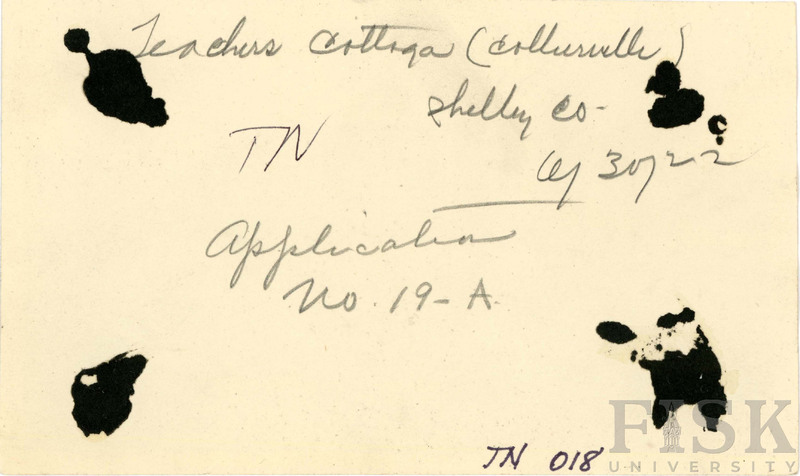 Teachers Cottage (Collierville)
Shelby Co-
TN
6/30/22
Application
No. 19-A
TN 018
FISK
UNIVERSITY